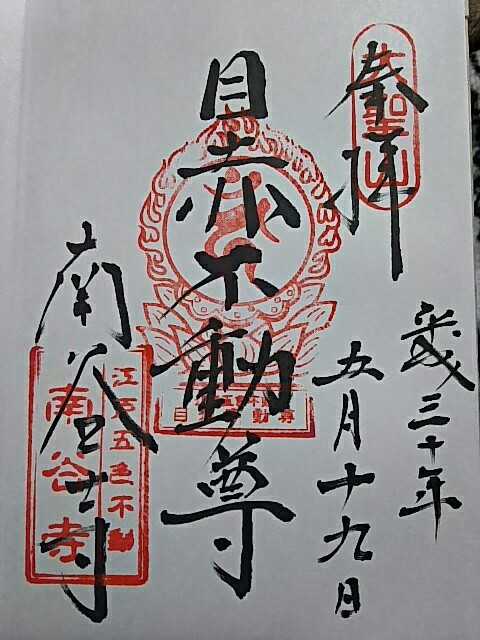 奉拝
平成三十年
五月十九日
目赤不動尊
南谷寺
江戸五色不動
南谷寺